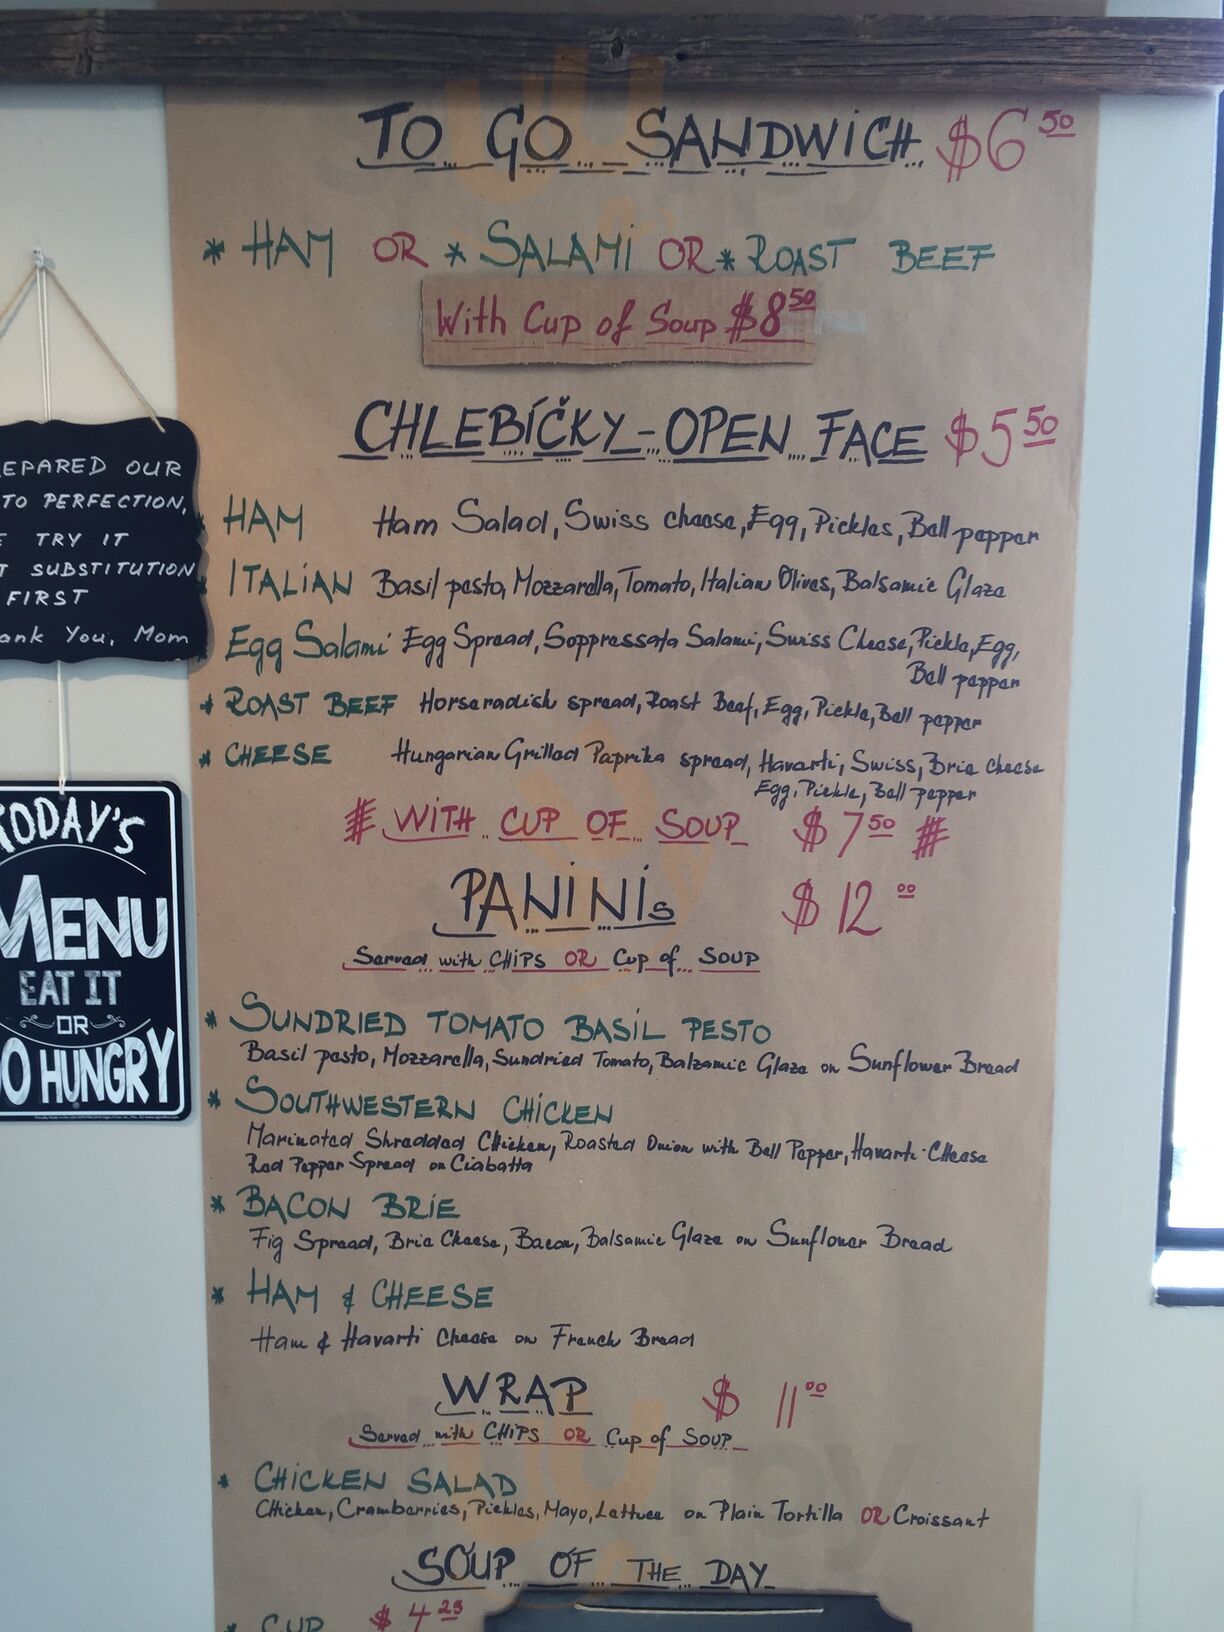 TO GO SANDWICH $6 50
* HAM OR * SALAMI OR * ROAST BEEF
With Cup of Soup $8 50
CHLEBÍČKY - OPEN FACE $5 50
HAM Ham Salad, Swiss cheese, Egg, Pickles, Bell pepper
* ITALIAN Basil pesto, Mozzarella, Tomato, Italian Olives, Balsamic Glaze
Egg Salami Egg Spread, Soppressata Salami, Swiss Cheese, Pickle, Egg,
Bell pepper
* ROAST BEEF Horseradish spread, Roast Beef, Egg, Pickle, Bell pepper
* CHEESE Hungarian Grilled Paprika spread, Havarti, Swiss, Brie cheese
Egg, Pickle, Bell pepper
# WITH CUP OF SOUP $7 50 #
PANINIs $12 00
Served with CHIPS OR Cup of SOUP
* SUNDRIED TOMATO BASIL PESTO
Basil pesto, Mozzarella, Sundried Tomato, Balzamic Glaze on Sunflower Bread
* SOUTHWESTERN CHICKEN
Marinated Shredded Chicken, Roasted Onion with Bell Pepper, Havarti Cheese
Red Pepper Spread on Ciabatta
* BACON BRIE
Fig Spread, Brie Cheese, Bacon, Balsamic Glaze on Sunflower Bread
* HAM & CHEESE
Ham & Havarti Cheese on French Bread
WRAP $11 00
Served with CHIPS OR Cup of SOUP
* CHICKEN SALAD
Chicken, Cramberries, Pickles, Mayo, Lettuce on Plain Tortilla OR Croissant
SOUP OF THE DAY
* CUP $4 25
EPARED OUR
TO PERFECTION,
E TRY IT
T SUBSTITUTION
FIRST
ank You, Mom
TODAY'S
MENU
EAT IT
OR
GO HUNGRY